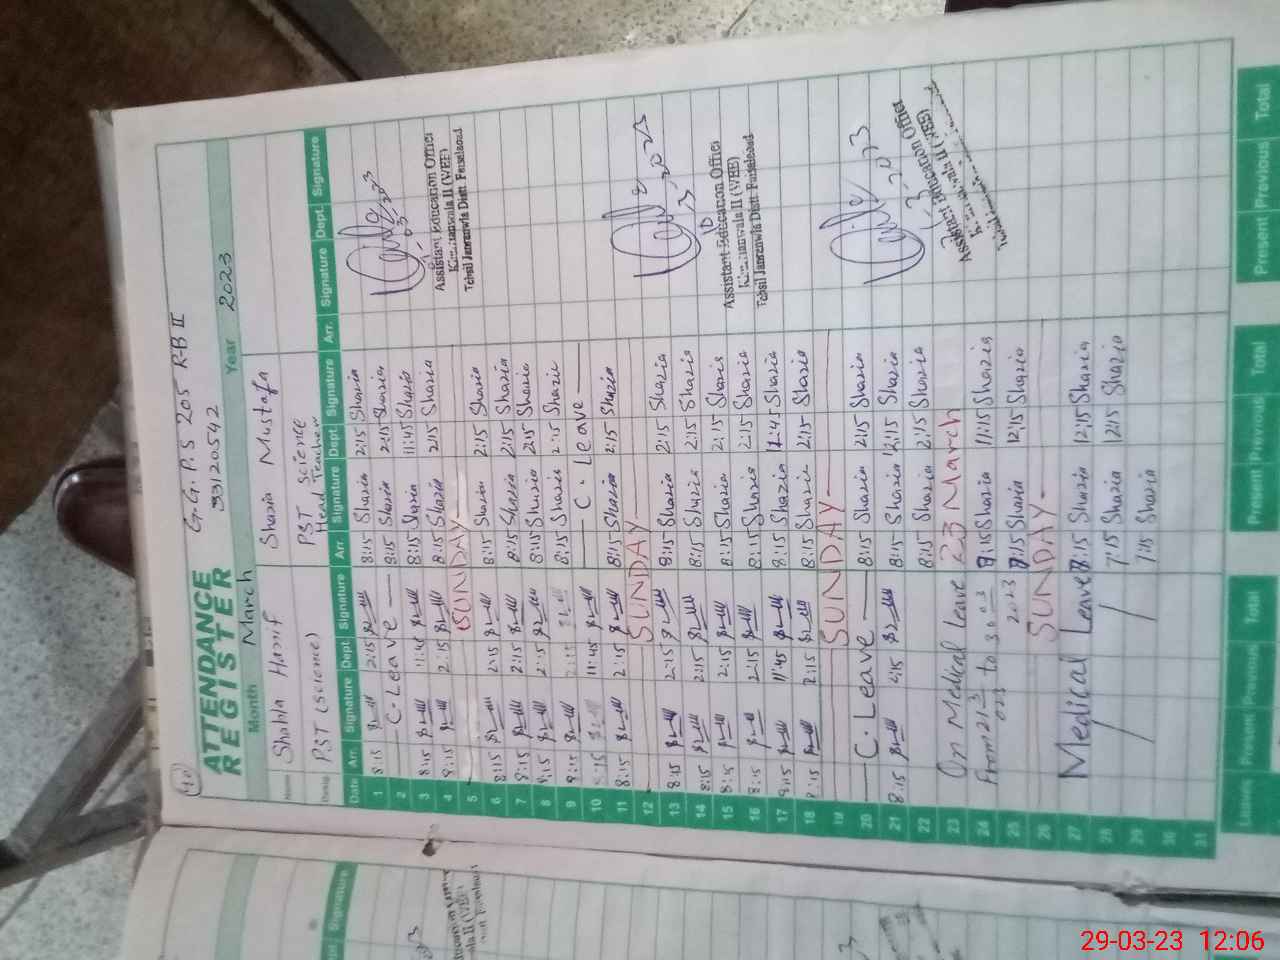 40
ATTENDANCE
REGISTER
G.G.P.S 205 R-B II
33120542
Month March Year 2023
Name Shahla Hanif Shazia Mustafa
PST (Science) PST Science
Head Teacher
Date Arr. Signature Dept. Signature Arr. Signature Dept. Signature Arr. Signature Dept. Signature
1 8:15 2:15 8:15 Shazia 2:15 Shazia
2 C. Leave 8:15 Shazia 2:15 Shazia
3 8:15 11:45 8:15 Shazia 11:45 Shazia
4 8:15 2:15 8:15 Shazia 2:15 Shazia
5 SUNDAY
6 8:15 2:15 8:15 Shazia 2:15 Shazia
7 8:15 2:15 8:15 Shazia 2:15 Shazia
8 8:15 2:15 8:15 Shazia 2:15 Shazia
9 8:15 2:15 8:15 Shazia 2:15 Shazia
10 8:15 11:45 C. Leave
11 8:15 2:15 8:15 Shazia 2:15 Shazia
12 SUNDAY
13 8:15 2:15 8:15 Shazia 2:15 Shazia
14 8:15 2:15 8:15 Shazia 2:15 Shazia
15 8:15 2:15 8:15 Shazia 2:15 Shazia
16 8:15 2:15 8:15 Shazia 2:15 Shazia
17 8:15 11:45 8:15 Shazia 11:45 Shazia
18 8:15 2:15 8:15 Shazia 2:15 Shazia
19 SUNDAY
20 C. Leave 8:15 Shazia 2:15 Shazia
21 8:15 8:15 Shazia 12:15 Shazia
22 8:15 Shazia 2:15 Shazia
23 On Medical Leave 23 March
24 From to 8:15 Shazia 11:15 Shazia
25 2023 8:15 Shazia 12:15 Shazia
26 SUNDAY
27 Medical Leave 8:15 Shazia 12:15 Shazia
28 7:15 Shazia 12:15 Shazia
29 7:15 Shazia
30
31
Assistant Education Officer
II (WEE)
Tehsil Jaranwala Distt Faisalabad
Assistant Education Officer
II (WEE)
Tehsil Jaranwala Distt Faisalabad
Assistant Education Officer
II (WEE)
Leave Present Previous Total Present Previous Total Present Previous Total
Signature
29-03-23 12:06